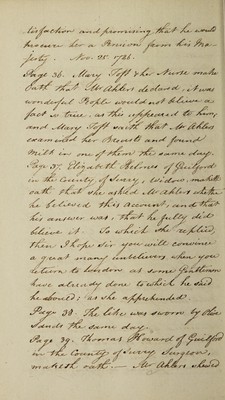 tisfaction and promising that he would
procure her a Pension from his Ma
jesty. Nov. 25. 1726.
Page 36. Mary Toft & her Nurse make
Oath that Mr Ahlers declared, it was
wonderful People would not believe a
fact so true, as this appeared to him;
and Mary Toft saith that Mr Ahlers
examined her Breasts and found
Milk in one of them the same day.
Page 37. Elizabeth of Guilford
in the County of Surry, Widow, maketh
oath that she asked Mr Ahlers whether
he believed this account, and that
his answer was, that he fully did
believe it. To which she replied,
then I hope Sir you will convince
a great many unbelievers when you
return to London as some Gentlemen
have already done to which he said
he should; as she apprehended.
Page 38. The like was sworn by Olive
Sands the same day
Page 39. Thomas Howard of Guilford
in the County of Surry Surgeon,
maketh oath — Mr Ahlers shewed